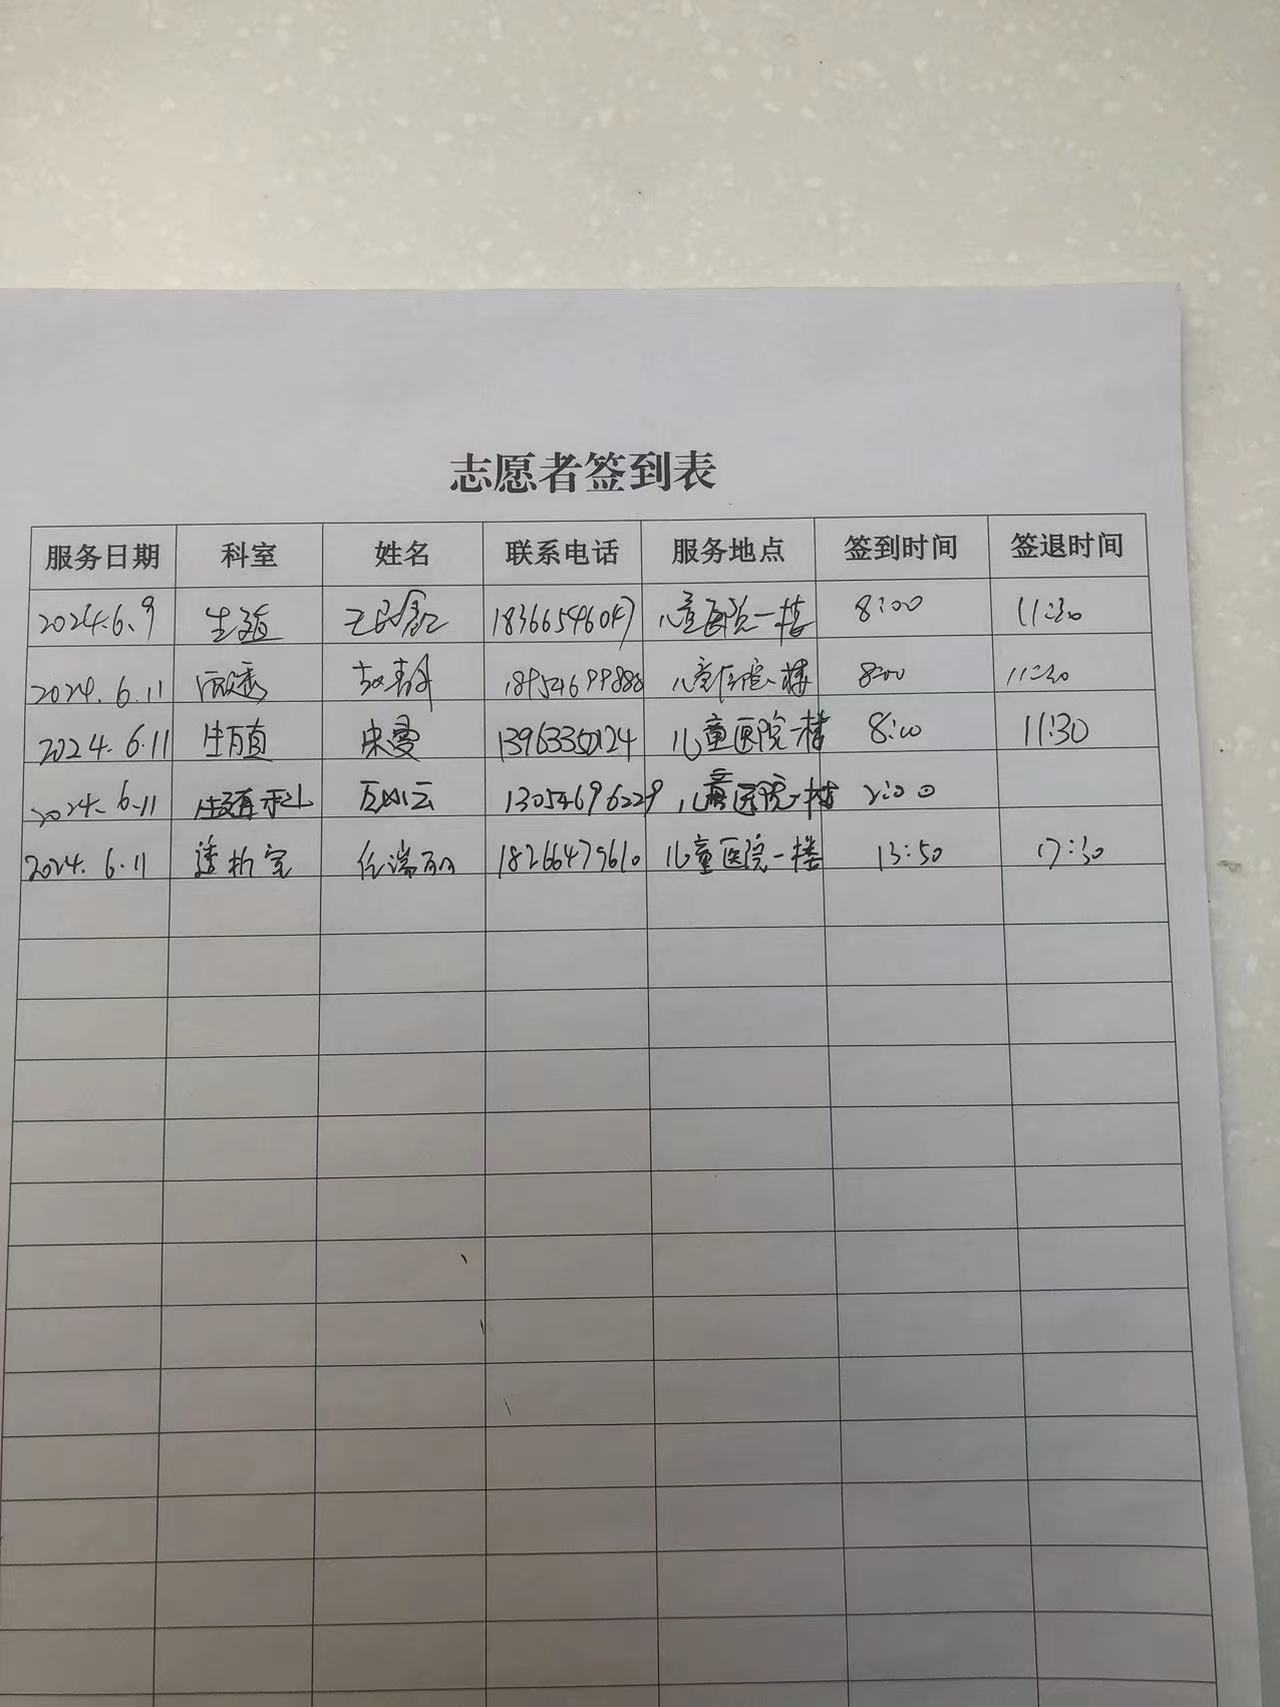 志愿者签到表
服务日期 科室 姓名 联系电话 服务地点 签到时间 签退时间
2024.6.9 生殖 18366546047 儿童医院一楼 8:00 11:30
2024.6.11 18954699888 儿童医院一楼 8:00 11:30
2024.6.11 生殖 宋雯 13963350124 儿童医院一楼 8:00 11:30
2024.6.11 生殖科 13054696229 儿童医院一楼 2:00
2024.6.11 透析室 任瑞丽 18266479610 儿童医院一楼 13:50 17:30